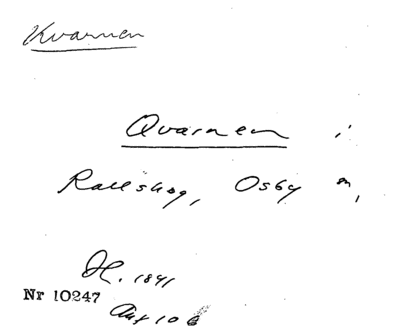 Kvarnen
Qvarnen i
Rallskog, Osby sn,
H. 1841
Nr 10247
Aux 106